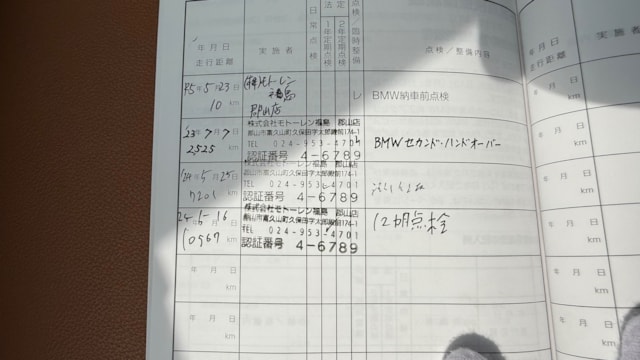 年月日
走行距離
実施者
日常点検
法定
1年定期点検
2年定期点検
点検/臨時整備
点検/整備内容
年月日
走行距離
実施者
年5月23日
10 km
(株)モトーレン
福島
郡山店
レ
BMW納車前点検
'23年7月7日
2,525 km
株式会社モトーレン福島 郡山店
郡山市富久山町久保田字太郎殿前174-1
TEL 024-953-4701
認証番号 4-6789
レ
BMWセカンド・ハンドオーバー
'24年5月25日
7201 km
株式会社モトーレン福島 郡山店
郡山市富久山町久保田字太郎殿前174-1
TEL 024-953-4701
認証番号 4-6789
24年6月16日
10967 km
株式会社モトーレン福島 郡山店
郡山市富久山町久保田字太郎殿前174-1
TEL 024-953-4701
認証番号 4-6789
12ヵ月点検
年月日
km
年月日
km
年月日
年月日
km
年月日
km
年月日
km
年月日
km